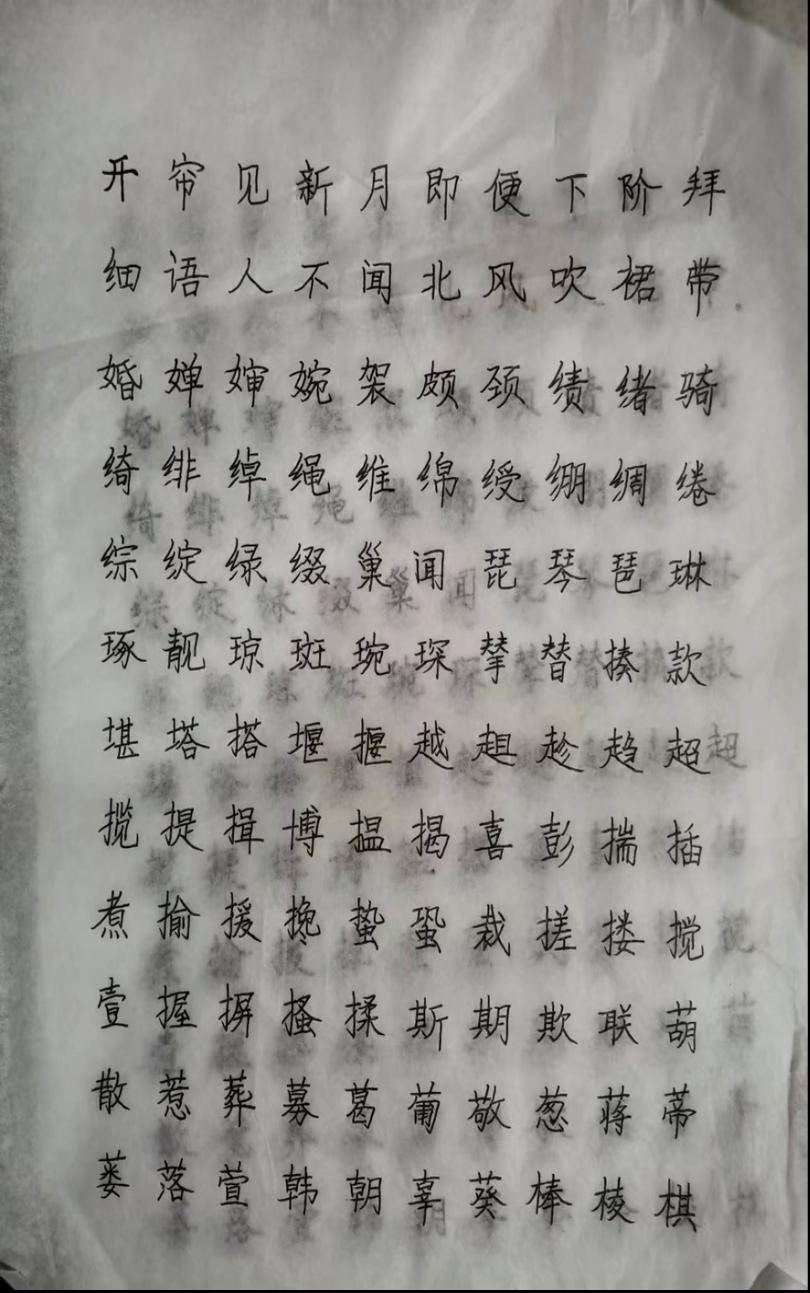 开帘见新月即便下阶拜
细语人不闻北风吹裙带
婚婵婶婉袈颇颈绩绪骑
绮绯绰绳维绵绶绷绸绻
综绽绿缀巢闻琵琴琶琳
琢靓琼斑琬琛揅替揍款
堪塔搭堰揠越趄趁趋超
揽提揖博揾揭喜彭揣插
煮揄援搀蛰蛩裁搓搂搅
壹握摒搔揉斯期欺联葫
散惹葬募葛葡敬葱蒋蒂
蒌落萱韩朝辜葵棒棱棋